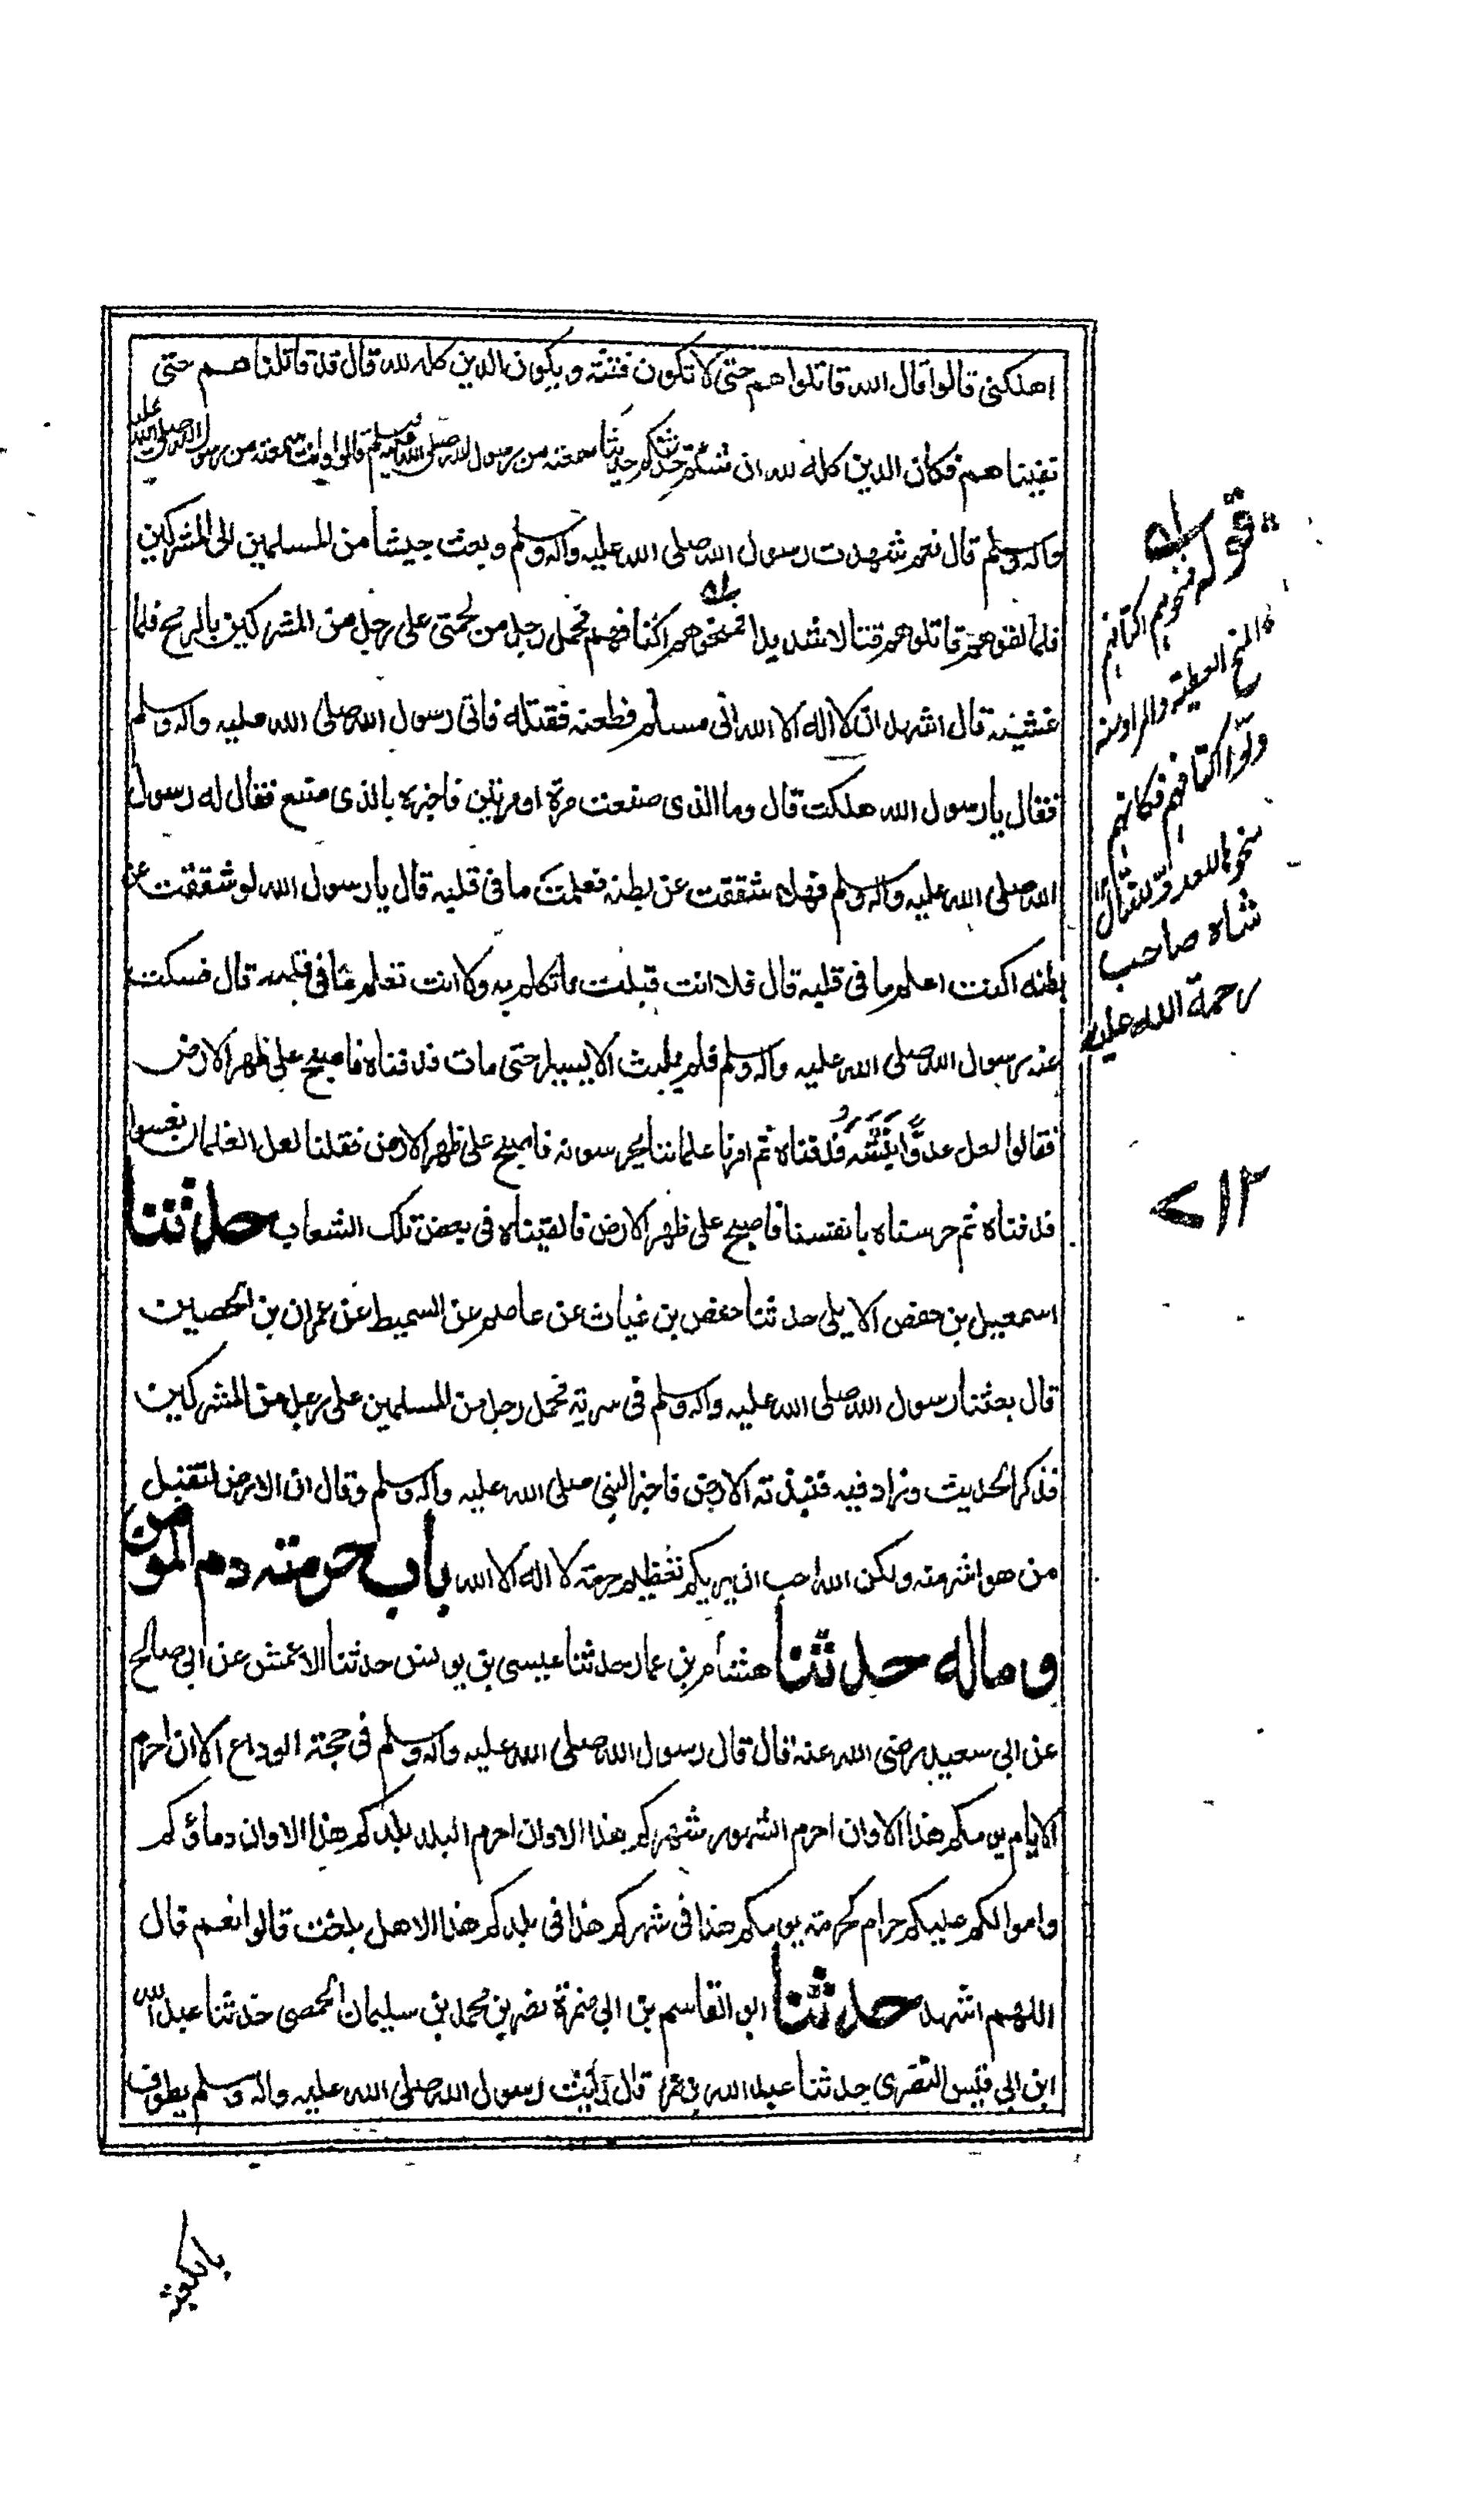 اهلكنى قالوا قال الله قاتلوا هم حتى لا تكون فتنة ويكون الدين كله لله قال قد قاتلنا هم حتى
نفينا هم فكان الدين كله لله ان شئتم حدثتكم حديثا سمعته من رسول الله صلى الله عليه وآله وسلم قالوا وانت سمعته من رسول الله صلى الله عليه
وآله وسلم قال نعم شهدت رسول الله صلى الله عليه وآله وسلم وبعث جيشا من المسلمين الى المشركين
فلما لقوهم قاتلوهم قتالا شديدا فمنحوهم اكتافهم فحمل رجل من لحمتى على رجل من المشركين بالرمح فلما
غشيه قال اشهد ان لا اله الا الله انى مسلم فطعنه فقتله فاتى رسول الله صلى الله عليه وآله وسلم
فقال يا رسول الله هلكت قال وما الذى صنعت مرة او مرتين فاخبره بالذى صنع فقال له رسول
الله صلى الله عليه وآله وسلم فهلا شققت عن بطنه فعلمت ما فى قلبه قال يا رسول الله لو شققت عن
بطنه اكنت اعلم ما فى قلبه قال فلا انت قبلت ما تكلم به ولا انت تعلم ما فى قلبه قال فسكت
عنه رسول الله صلى الله عليه وآله وسلم فلم يلبث الا يسيرا حتى مات فدفناه فاصبح على ظهر الارض
فقالوا لعل عدوا نبشه فدفناه ثم امرنا غلماننا يحرسونه فاصبح على ظهر الارض فقلنا لعل الغلمان نعسوا
فدفناه ثم حرسناه بانفسنا فاصبح على ظهر الارض فالقيناه فى بعض تلك الشعاب حدثنا
اسمعيل بن حفص الايلى حدثنا حفص بن غياث عن عاصم عن السميط عن عمران بن الحصين
قال بعثنا رسول الله صلى الله عليه وآله وسلم فى سرية فحمل رجل من المسلمين على رجل من المشركين
فذكر الحديث وزاد فيه فنبذته الارض فاخبر النبى صلى الله عليه وآله وسلم وقال ان الارض لتقبل
من هو اشر منه ولكن الله احب ان يريكم تعظيم حرمة لا اله الا الله باب حرمة دم المومن
وماله حدثنا هشام بن عمار حدثنا عيسى بن يونس حدثنا الاعمش عن ابى صالح
عن ابى سعيد رضى الله عنه قال قال رسول الله صلى الله عليه وآله وسلم فى حجة الوداع الا ان احرم
الايام يومكم هذا الا وان احرم الشهور شهركم هذا الا وان احرم البلد بلدكم هذا الا وان دماؤكم
واموالكم عليكم حرام كحرمة يومكم هذا فى شهركم هذا فى بلدكم هذا الا هل بلغت قالوا نعم قال
اللهم اشهد حدثنا ابو القاسم بن ابى ضمرة نصر بن محمد بن سليمان الحمصى حدثنا عبد الله
ابن ابى قيس النصرى حدثنا عبد الله بن عمر قال رأيت رسول الله صلى الله عليه وآله وسلم يطوف
قوله فمنحوهم اكتافهم
المنح العطية والمراد منه
ولوا اكتافهم فكانهم
منحوها للعدو
شاه صاحب
رحمة الله عليه
١٢
بالكعبة